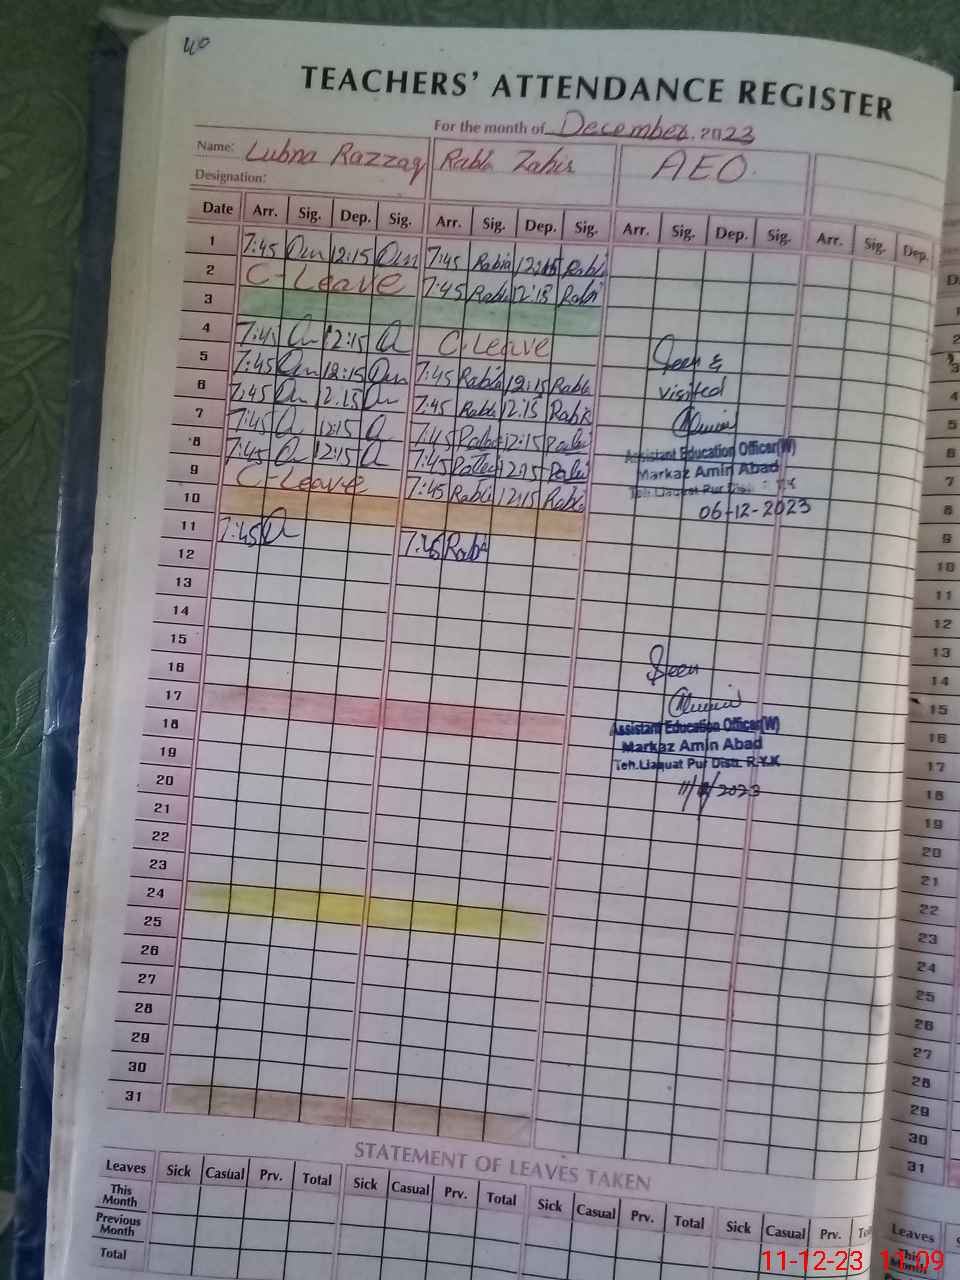 TEACHERS' ATTENDANCE REGISTER
For the month of December 2023
Name: Lubna Razzaq Rabia Zahir AEO
Designation:
Date Arr. Sig. Dep. Sig. Arr. Sig. Dep. Sig. Arr. Sig. Dep. Sig. Arr. Sig. Dep.
1 7:45 12:15 7:45 Rabia 12:15 Rabi
2 C-Leave 7:45 Rabi 12:15 Rabi
3
4 7:45 12:15 C-Leave
5 7:45 12:15 7:45 Rabia 12:15 Rabia
6 7:45 12:15 7:45 Rabi 12:15 Rabi
7 7:45 12:15 7:45 12:15
8 7:45 12:15 7:45 12:15
9 C-Leave 7:45 Rabi 12:15 Rabi
10
11 7:45 7:45 Rabi
12
13
14
15
16
17
18
19
20
21
22
23
24
25
26
27
28
29
30
31
Seen &
visited
Assistant Education Officer(W)
Markaz Amin Abad
Teh.Liaquat Pur Distt. R.Y.K
06-12-2023
Seen
Assistant Education Officer(W)
Markaz Amin Abad
Teh.Liaquat Pur Distt. R.Y.K
11/12/2023
STATEMENT OF LEAVES TAKEN
Leaves Sick Casual Prv. Total Sick Casual Prv. Total Sick Casual Prv. Total Sick Casual Prv.
This Month
Previous Month
Total
1
2
3
4
5
6
7
8
9
10
11
12
13
14
15
16
17
18
19
20
21
22
23
24
25
26
27
28
29
30
31
Leaves
This Month
11-12-23 11:09